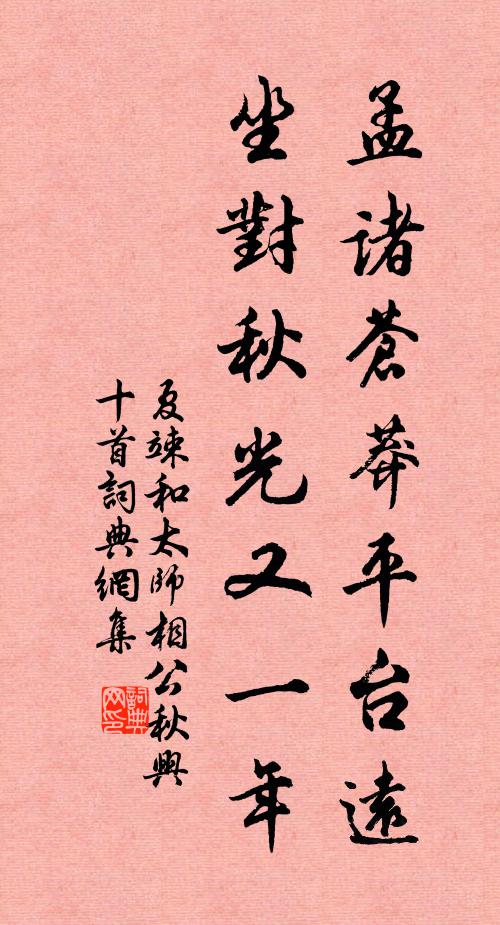 孟諸蒼莽平台遠
坐對秋光又一年
夏竦和太師相公秋興
十首詞典網集
詞典
网印